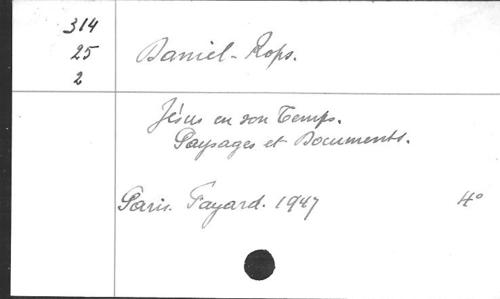 314
25
2
Daniel-Rops.
Jésus en son Temps.
Paysages et Documents.
Paris. Fayard. 1947 4°